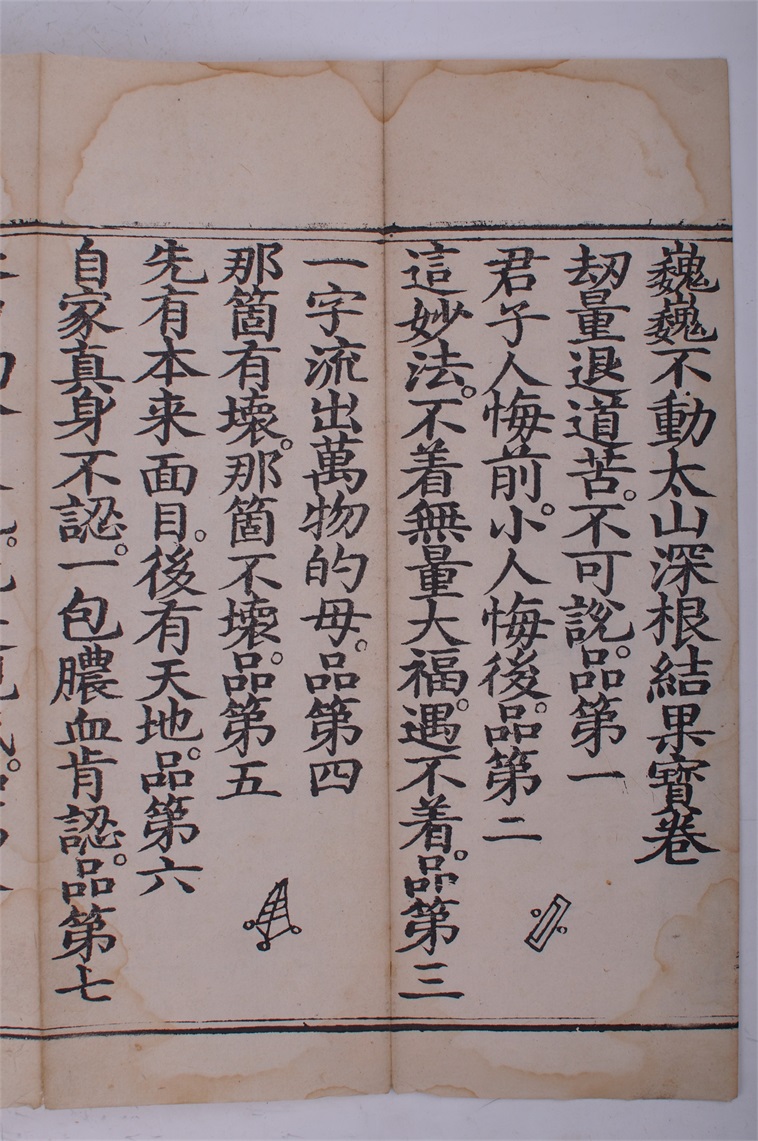 巍巍不動太山深根結果寶卷
刼量退道苦。不可說。品第一
君子人悔前。小人悔後。品第二
這妙法。不着無量大福。遇不着。品第三
一字流出萬物的母。品第四
那箇有壞。那箇不壞。品第五
先有本来面目。後有天地。品第六
自家真身不認。一包膿血肯認。品第七